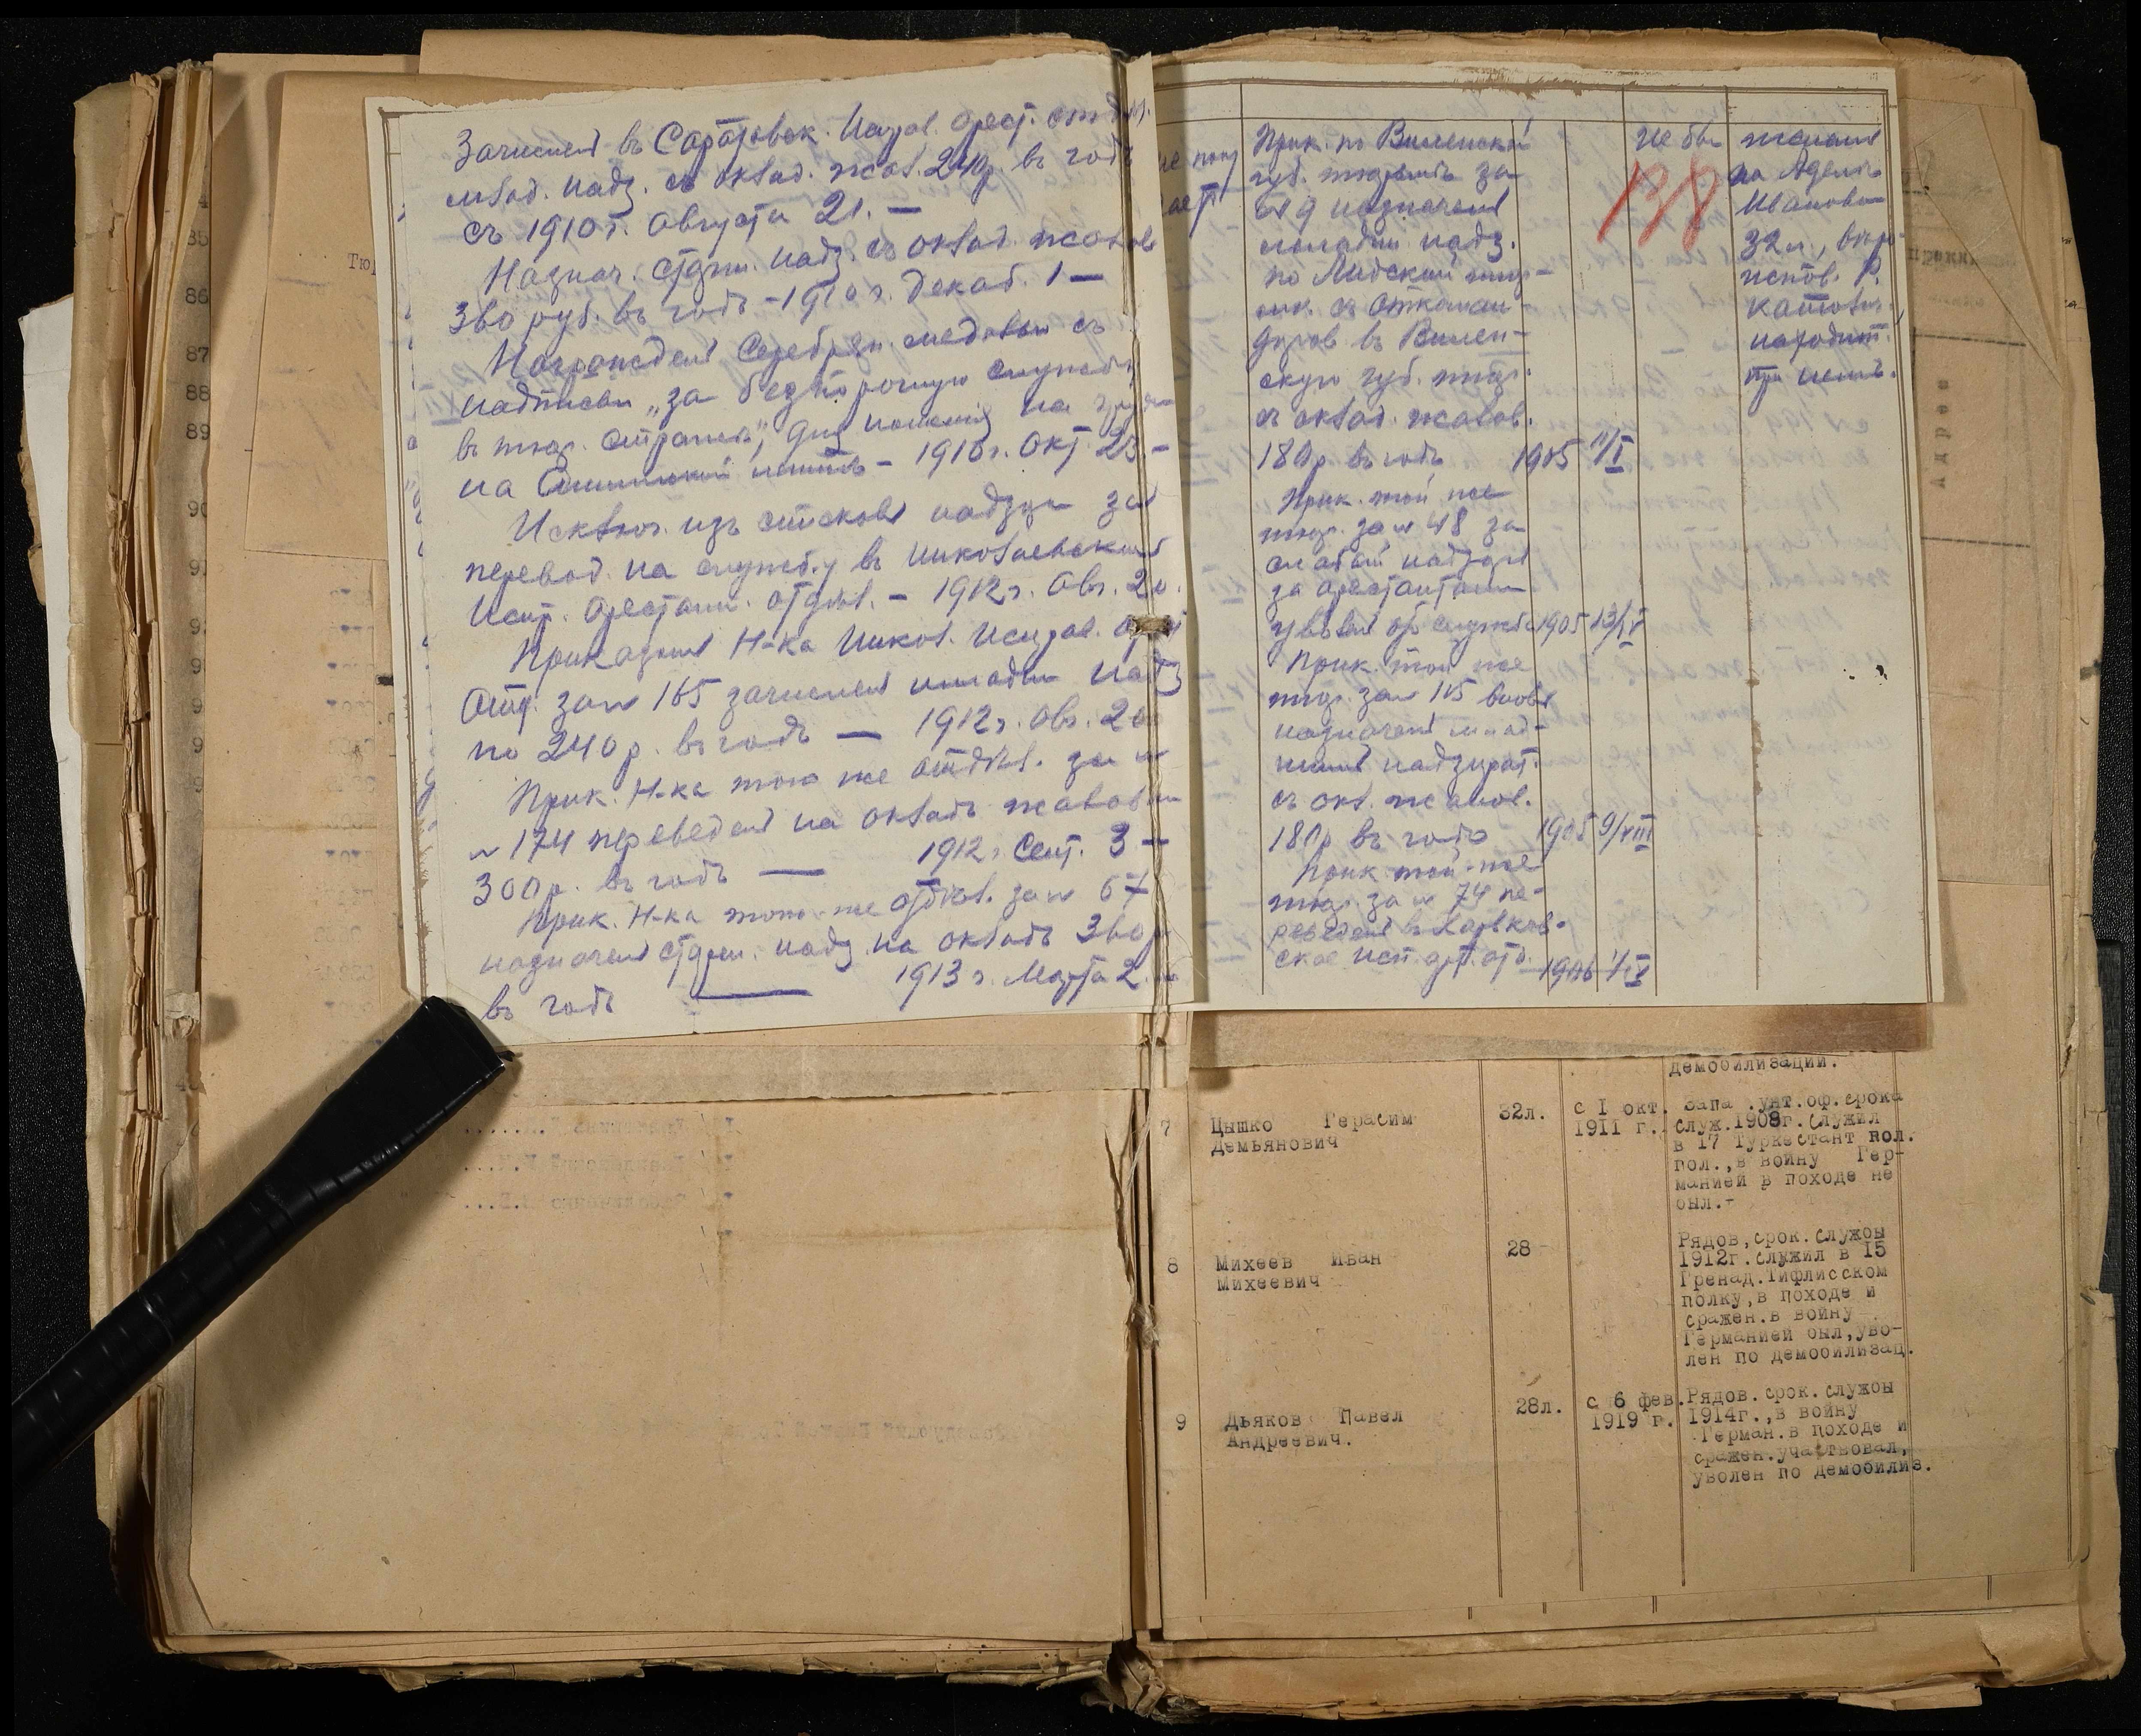 Зачислен въ Саратовск. Исправ. Арест. отдѣл.
млад. надз. съ оклад. жал. 240р. въ годъ
съ 1910 г. Августа 21. —
Назнач. старш. надз. съ оклад. жалов
360 руб. въ годъ - 1910 г. Декаб. 1 —
Награжден Серебрян. медалью съ
надписью „за безпорочную службу
въ тюр. страже", для ношенія на груди
на 1910 г. Окт. 23. —
Исключ. изъ списковъ надзир за
перевод. на службу въ Николаевское
Испр. Арестант. отдѣл. - 1912 г. Авг. 20.
Приказом Н-ка Никол. Исправ. Арест
Отд. за № 165 зачислен младш надз
по 240 р. въ годъ — 1912 г. Авг. 20
Прик. Н-ка того же отдѣл. за №
№ 174 переведен на окладъ жалован
300р. въ годъ — 1912 г. Сент. 3 —
Прик. Н-ка того-же отдѣл. за № 67
назначен старш. надз. на окладъ 360 р
въ годъ — 1913 г. Марта 2.
Прик. по Виленской
губ. тюрьмѣ за
№ 9 назначен
младш. надз.
по Лидской тюр-
ьм. съ откоман-
диров въ Вилен-
скую губ. тюр.
съ оклад. жалов.
180р. въ годъ 1905 11/I
Прик. той же
тюр. за № 48 за
слабый надзор
за арестантами
уволен от службы 1905 13/IV
Прик. той же
тюр. за № 115 вновь
назначен млад-
шим надзират.
съ окл. жалов.
180р въ годъ 1905 9/VIII
Прик той-же
тюр. за № 74 пе-
реведен в Харьков-
ское исп. арт. отд. 1906 1/IV
не бы
138
женат
на Адели
Ивановой
32 л., вѣро-
испов. Р.
Католич.,
находит.
при немъ.
85
86
87
88
89
демобилизации.
7 Цышко Герасим
Демьянович
32л.
с 1 окт.
1911 г.
Запа .унт.оф.срока
служ.1908г.служил
в 17 Туркестант пол.
пол.,в войну Гер-
манией в походе не
был.-
8 Михеев Иван
Михеевич
28 -
Рядов,срок.службы
1912г.служил в 15
Гренад.Тифлисском
полку,в походе и
сражен.в войну
Германией был,уво-
лен по демобилизац.
9 Дьяков Павел
Андреевич.
28л.
с 6 фев.
1919 г.
Рядов.срок.службы
1914г.,в войну
Герман.в походе и
сражен.участвовал,
уволен по демобилиз.